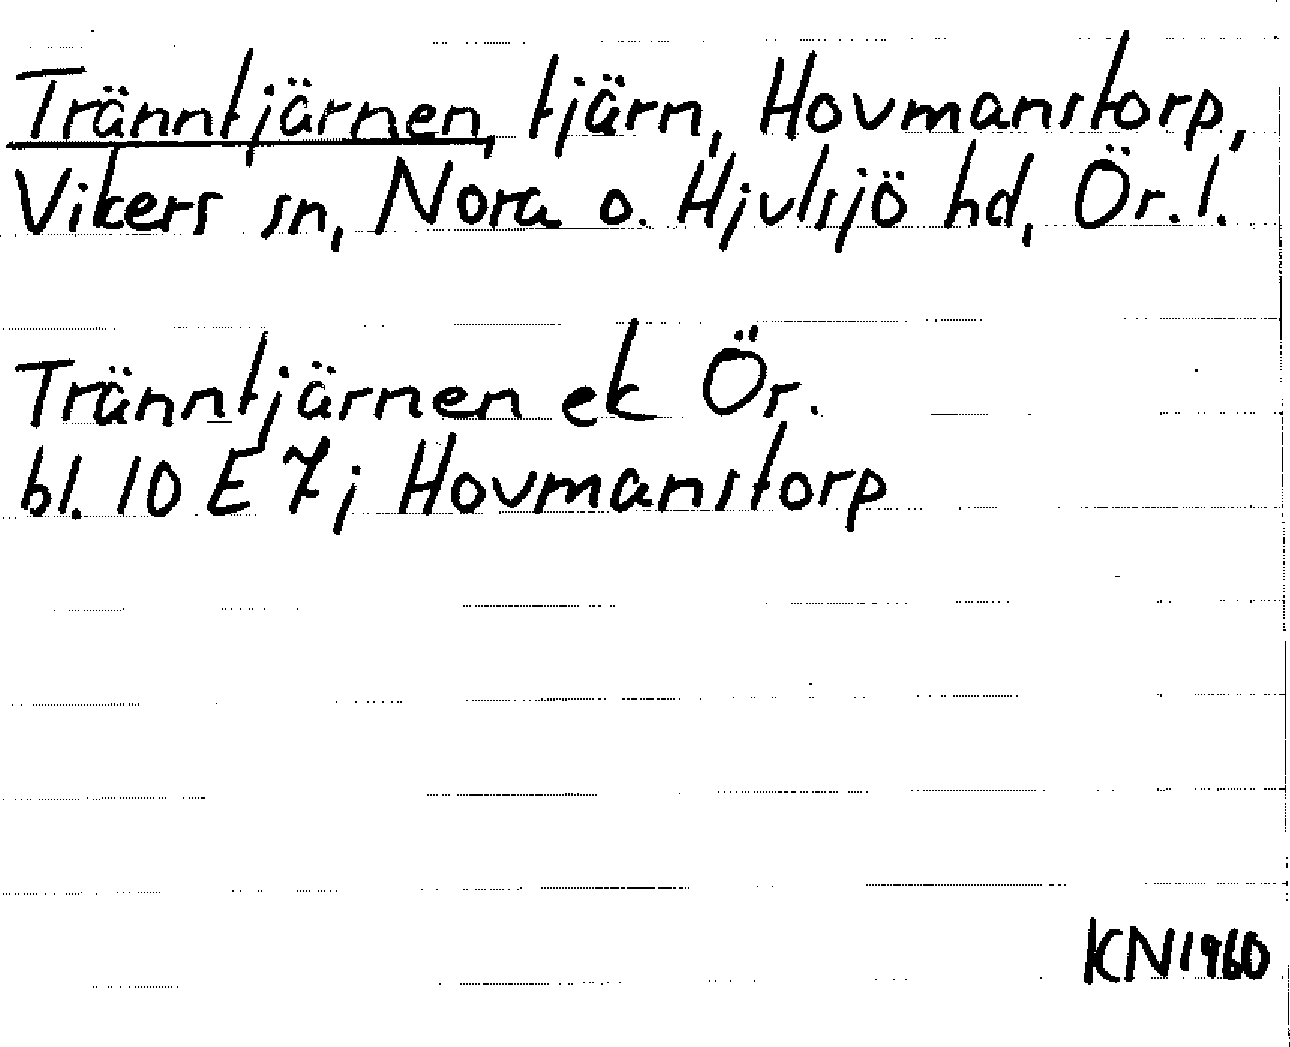 Tränntjärnen, tjärn, Hovmanstorp,
Vikers sn, Nora o. Hjulsjö hd, Ör. l.
Tränntjärnen ek Ör.
bl. 10 E 7j Hovmanstorp
KN1960